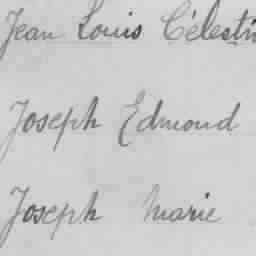 Jean Louis Célestin
Joseph Edmond
Joseph Marie